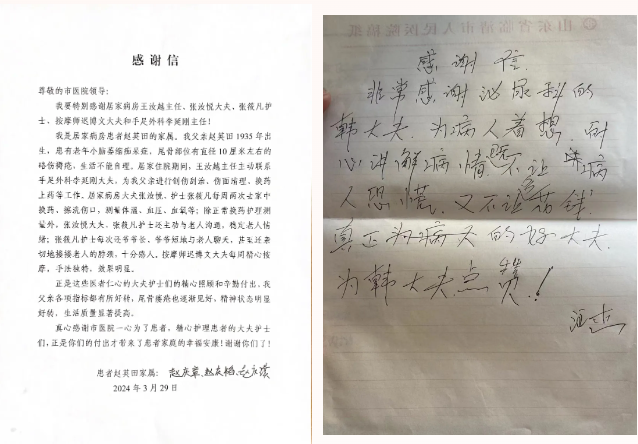 感谢信
尊敬的市医院领导:
我要特别感谢居家病房王汝越主任、张汝悦大夫、张薇凡护
士、按摩师迟博文大夫和手足外科李延刚大夫。
我是居家病房患者赵英田的家属。我父亲赵英田1935年出
生,患有老年小脑萎缩痴呆症,尾骨部位有直径10厘米左右的
咯伤褥疮,生活不能自理。居家住院期间,王汝越主任主动联系
手足外科李延刚大夫,为我父亲进行创伤封治、伤面清理、换药
上药等工作。居家病房大夫张汝悦、护士张薇凡每周两次去家中
换药,擦洗伤口,测量体温、血压、血氧等;除正常换药护理测
量外,张汝悦大夫、张薇凡护士还主动与老人沟通,稳定老人情
绪;张薇凡护士每次还爷爷长、爷爷短地与老人聊天,甚至还亲
切地搂搂老人的脖颈,十分感人。按摩师迟博文大夫每周精心按
摩,手法独特,效果明显。
正是这些医者仁心的大夫护士们的精心照顾和辛勤付出,我
父亲各项指标都有所好转,尾骨褥疮也逐渐见好,精神状态明显
好转,生活质量显著提高。
真心感谢市医院一心为了患者,精心护理患者的大夫护士
们,正是你们的付出才带来了患者家庭的幸福安康!谢谢你们了!
患者赵英田家属:
2024年3月29日
感谢信
非常感谢泌尿科的
韩大夫.为病人着想.耐
心讲解病情既不让病
人恐慌.又不让花钱
真正为病人的好大夫.
为韩大夫点赞!